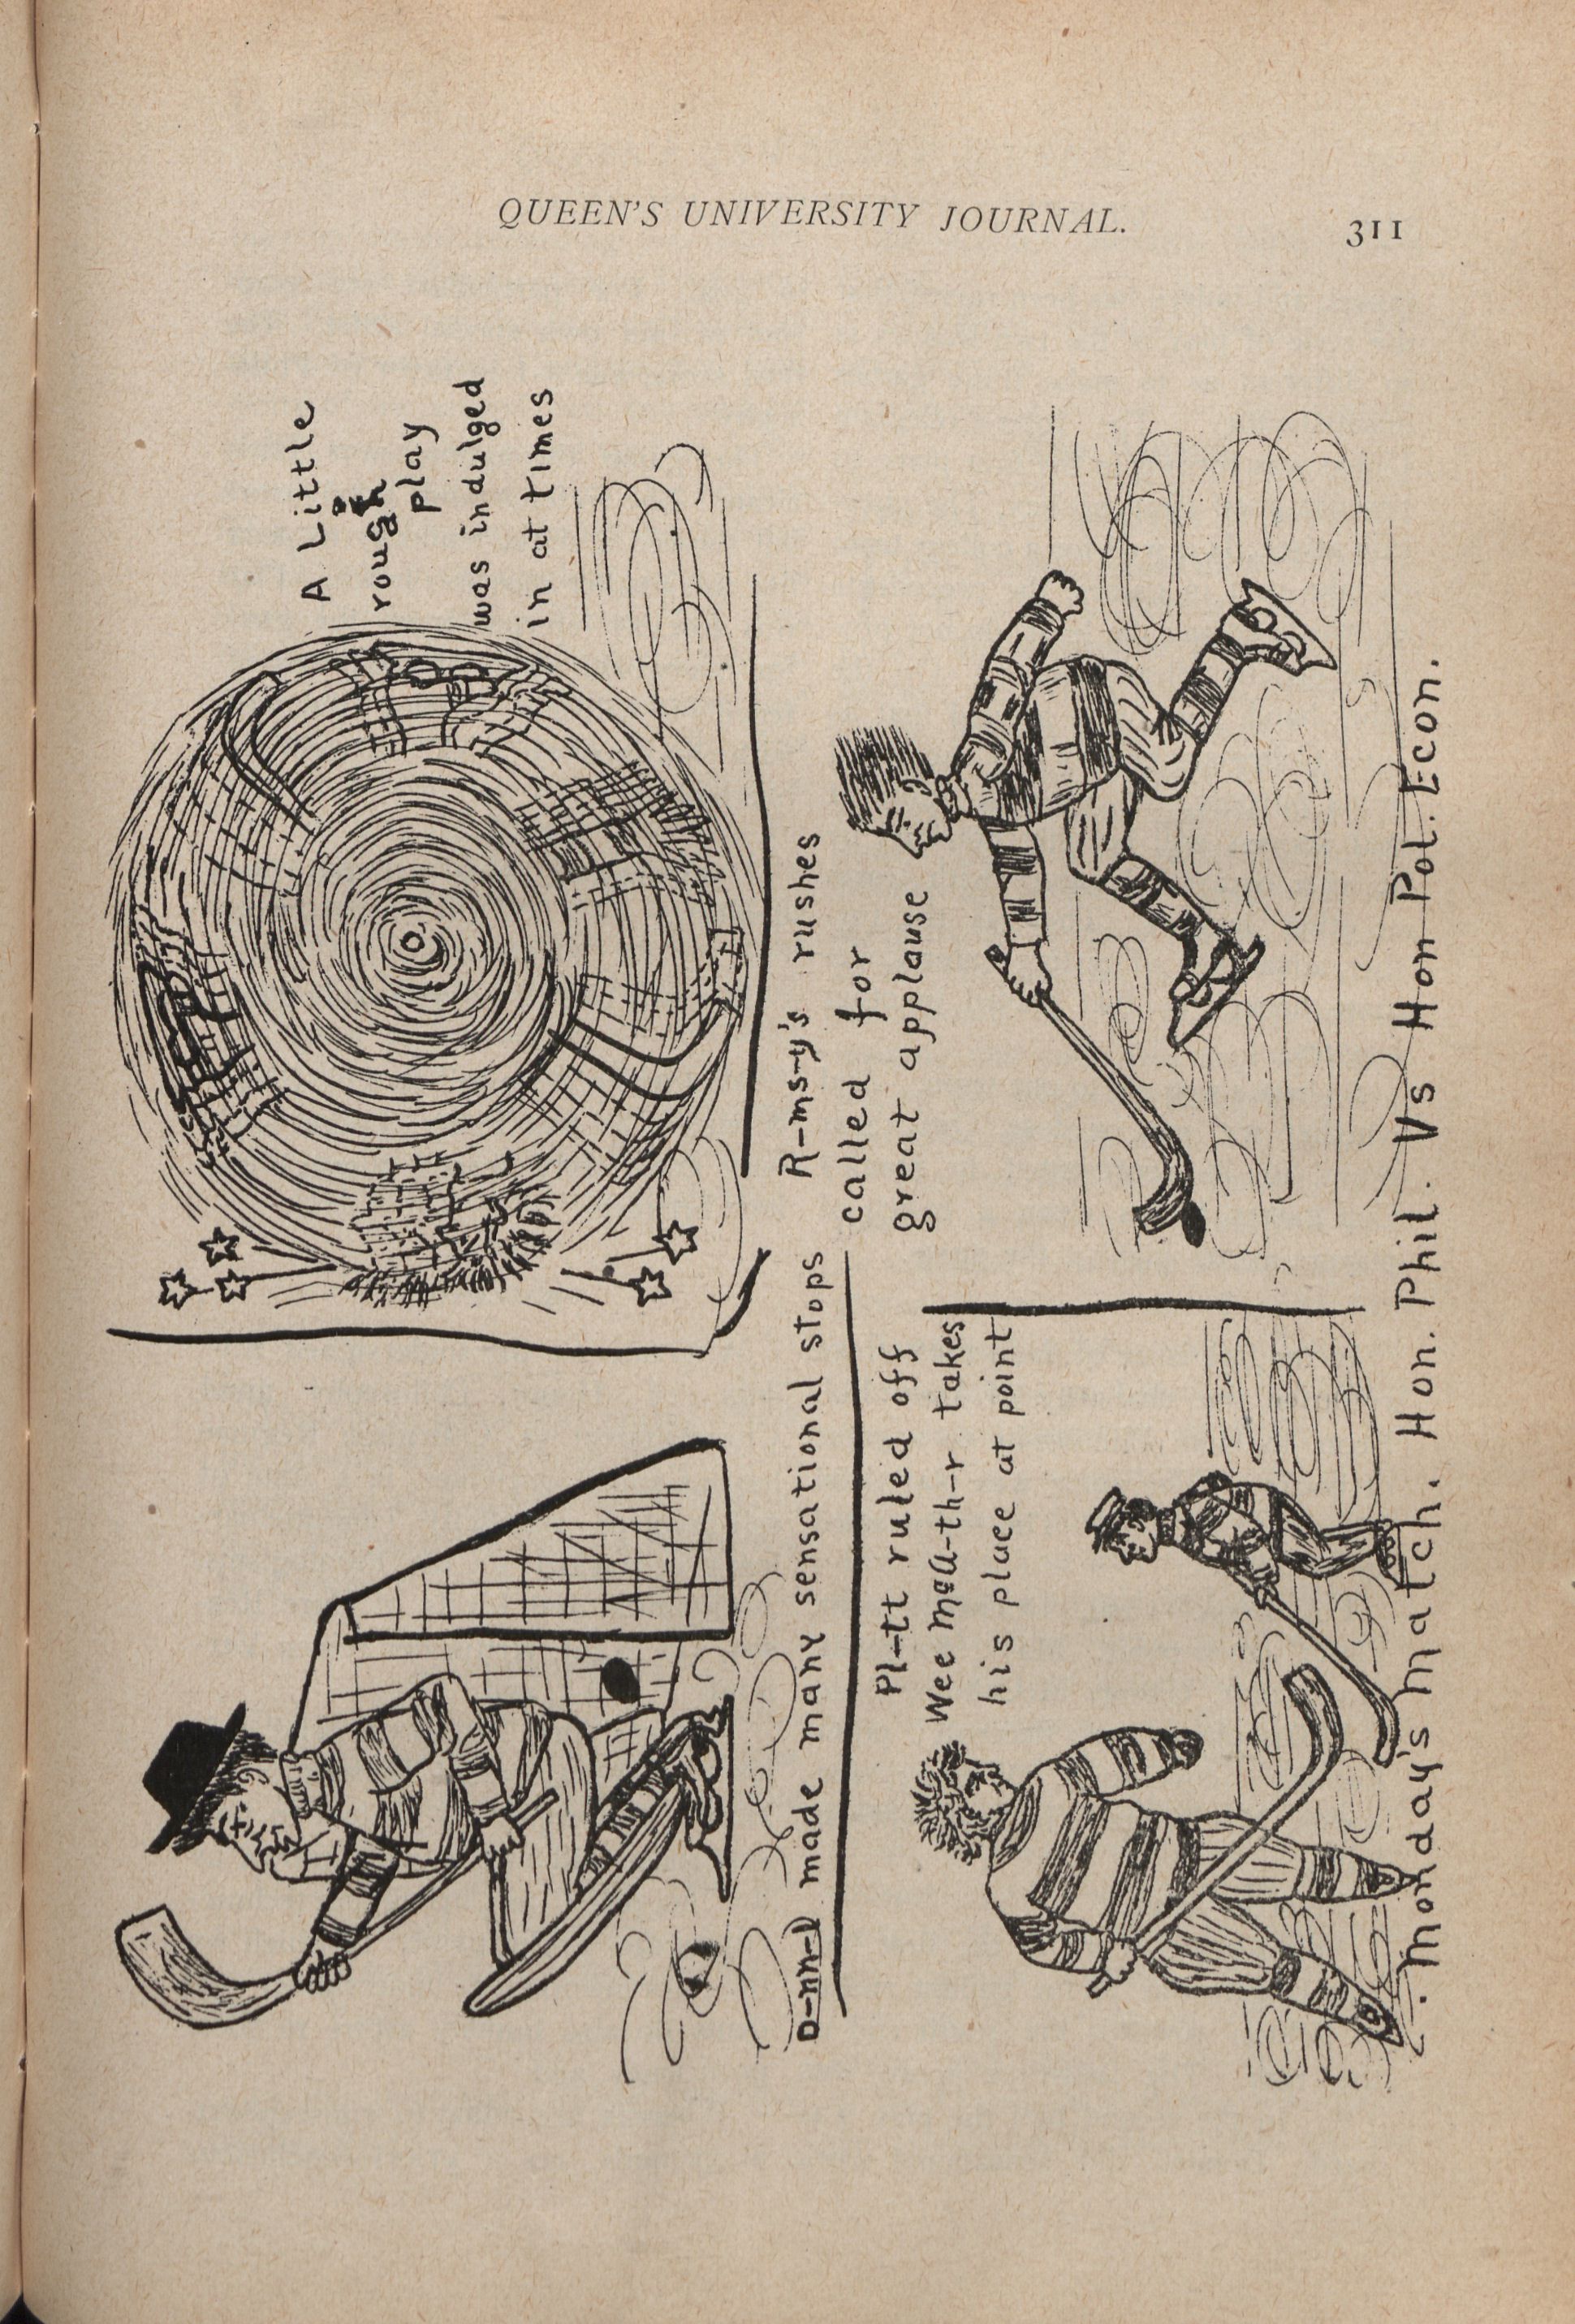 QUEEN'S UNIVERSITY JOURNAL.
311
A Little
rough
play
was indulged
in at times
D-nn-l made many sensational stops
R-ms-y's rushes
called for
great applause
Pl-tt ruled off
Wee McA-th-r takes
his place at point
. Monday's match. Hon. Phil. Vs Hon Pol. Econ.